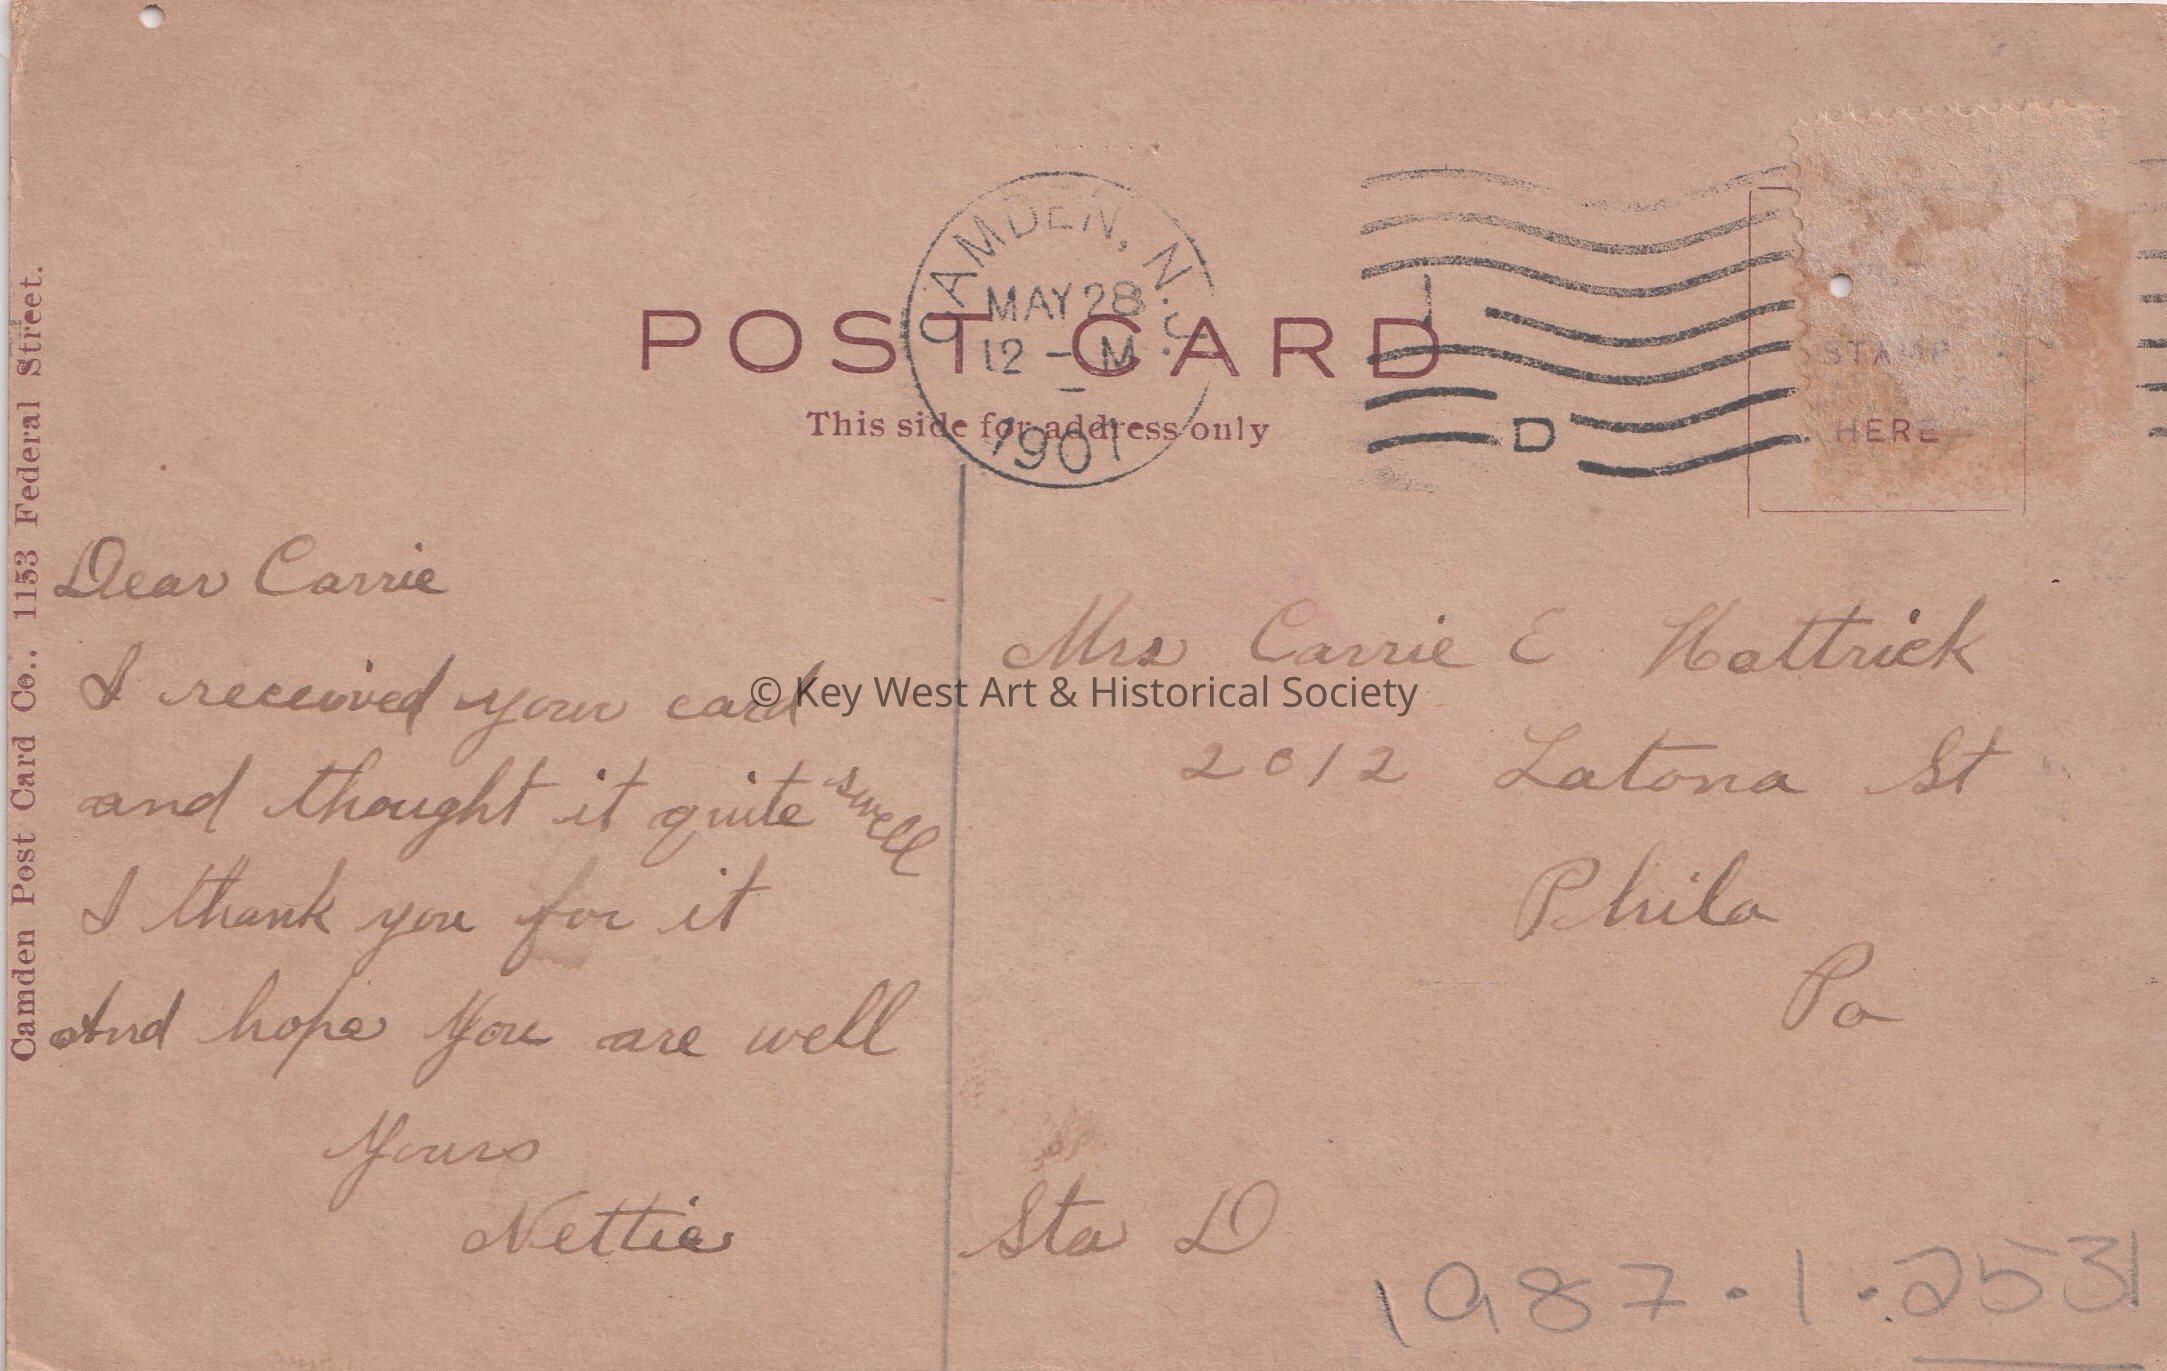 CAMDEN, N.J.
MAY 28
12 - M
1907
D
POST CARD
This side for address only
STAMP
HERE
Camden Post Card Co., 1153 Federal Street.
Dear Carrie
I received your card
and thought it quite swell
I thank you for it
And hope you are well
Yours
Nettie
Mrs Carrie E Hattrick
2012 Latona St
Phila
Pa
Sta D
1987.1.2531
© Key West Art & Historical Society